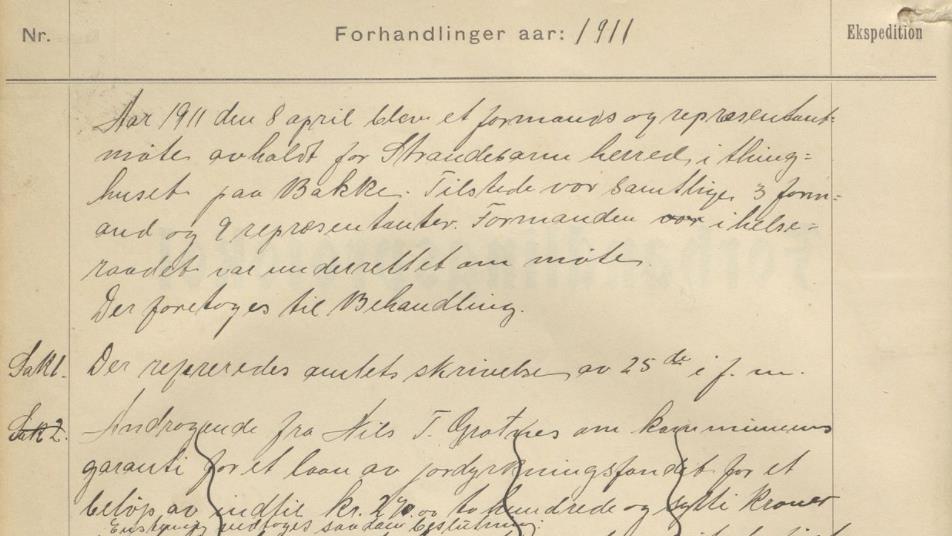 Nr. Forhandlinger aar: 1911 Ekspedition
Aar 1911 den 8 april blev et formands og repræsentant-
møte avholdt for Strandebarm herred, i thing=
huset paa Bakke. Tilstede var samtlige 3 form=
ænd og 9 repræsentanter. Formanden var i helse=
raadet var underrettet om møte.
Der foretoges til Behandling.
Sak 1. Der refereredes amtets skrivelse av 25de i f. m.
Sak 2. Andragende fra Nils T. Grotnes om kommunens
garanti for et laan av jordyrkningsfondet for et
beløp av indtil kr. 270.00 to hundrede og sytti kroner
Enstemmig vedtoges saadan beslutning: